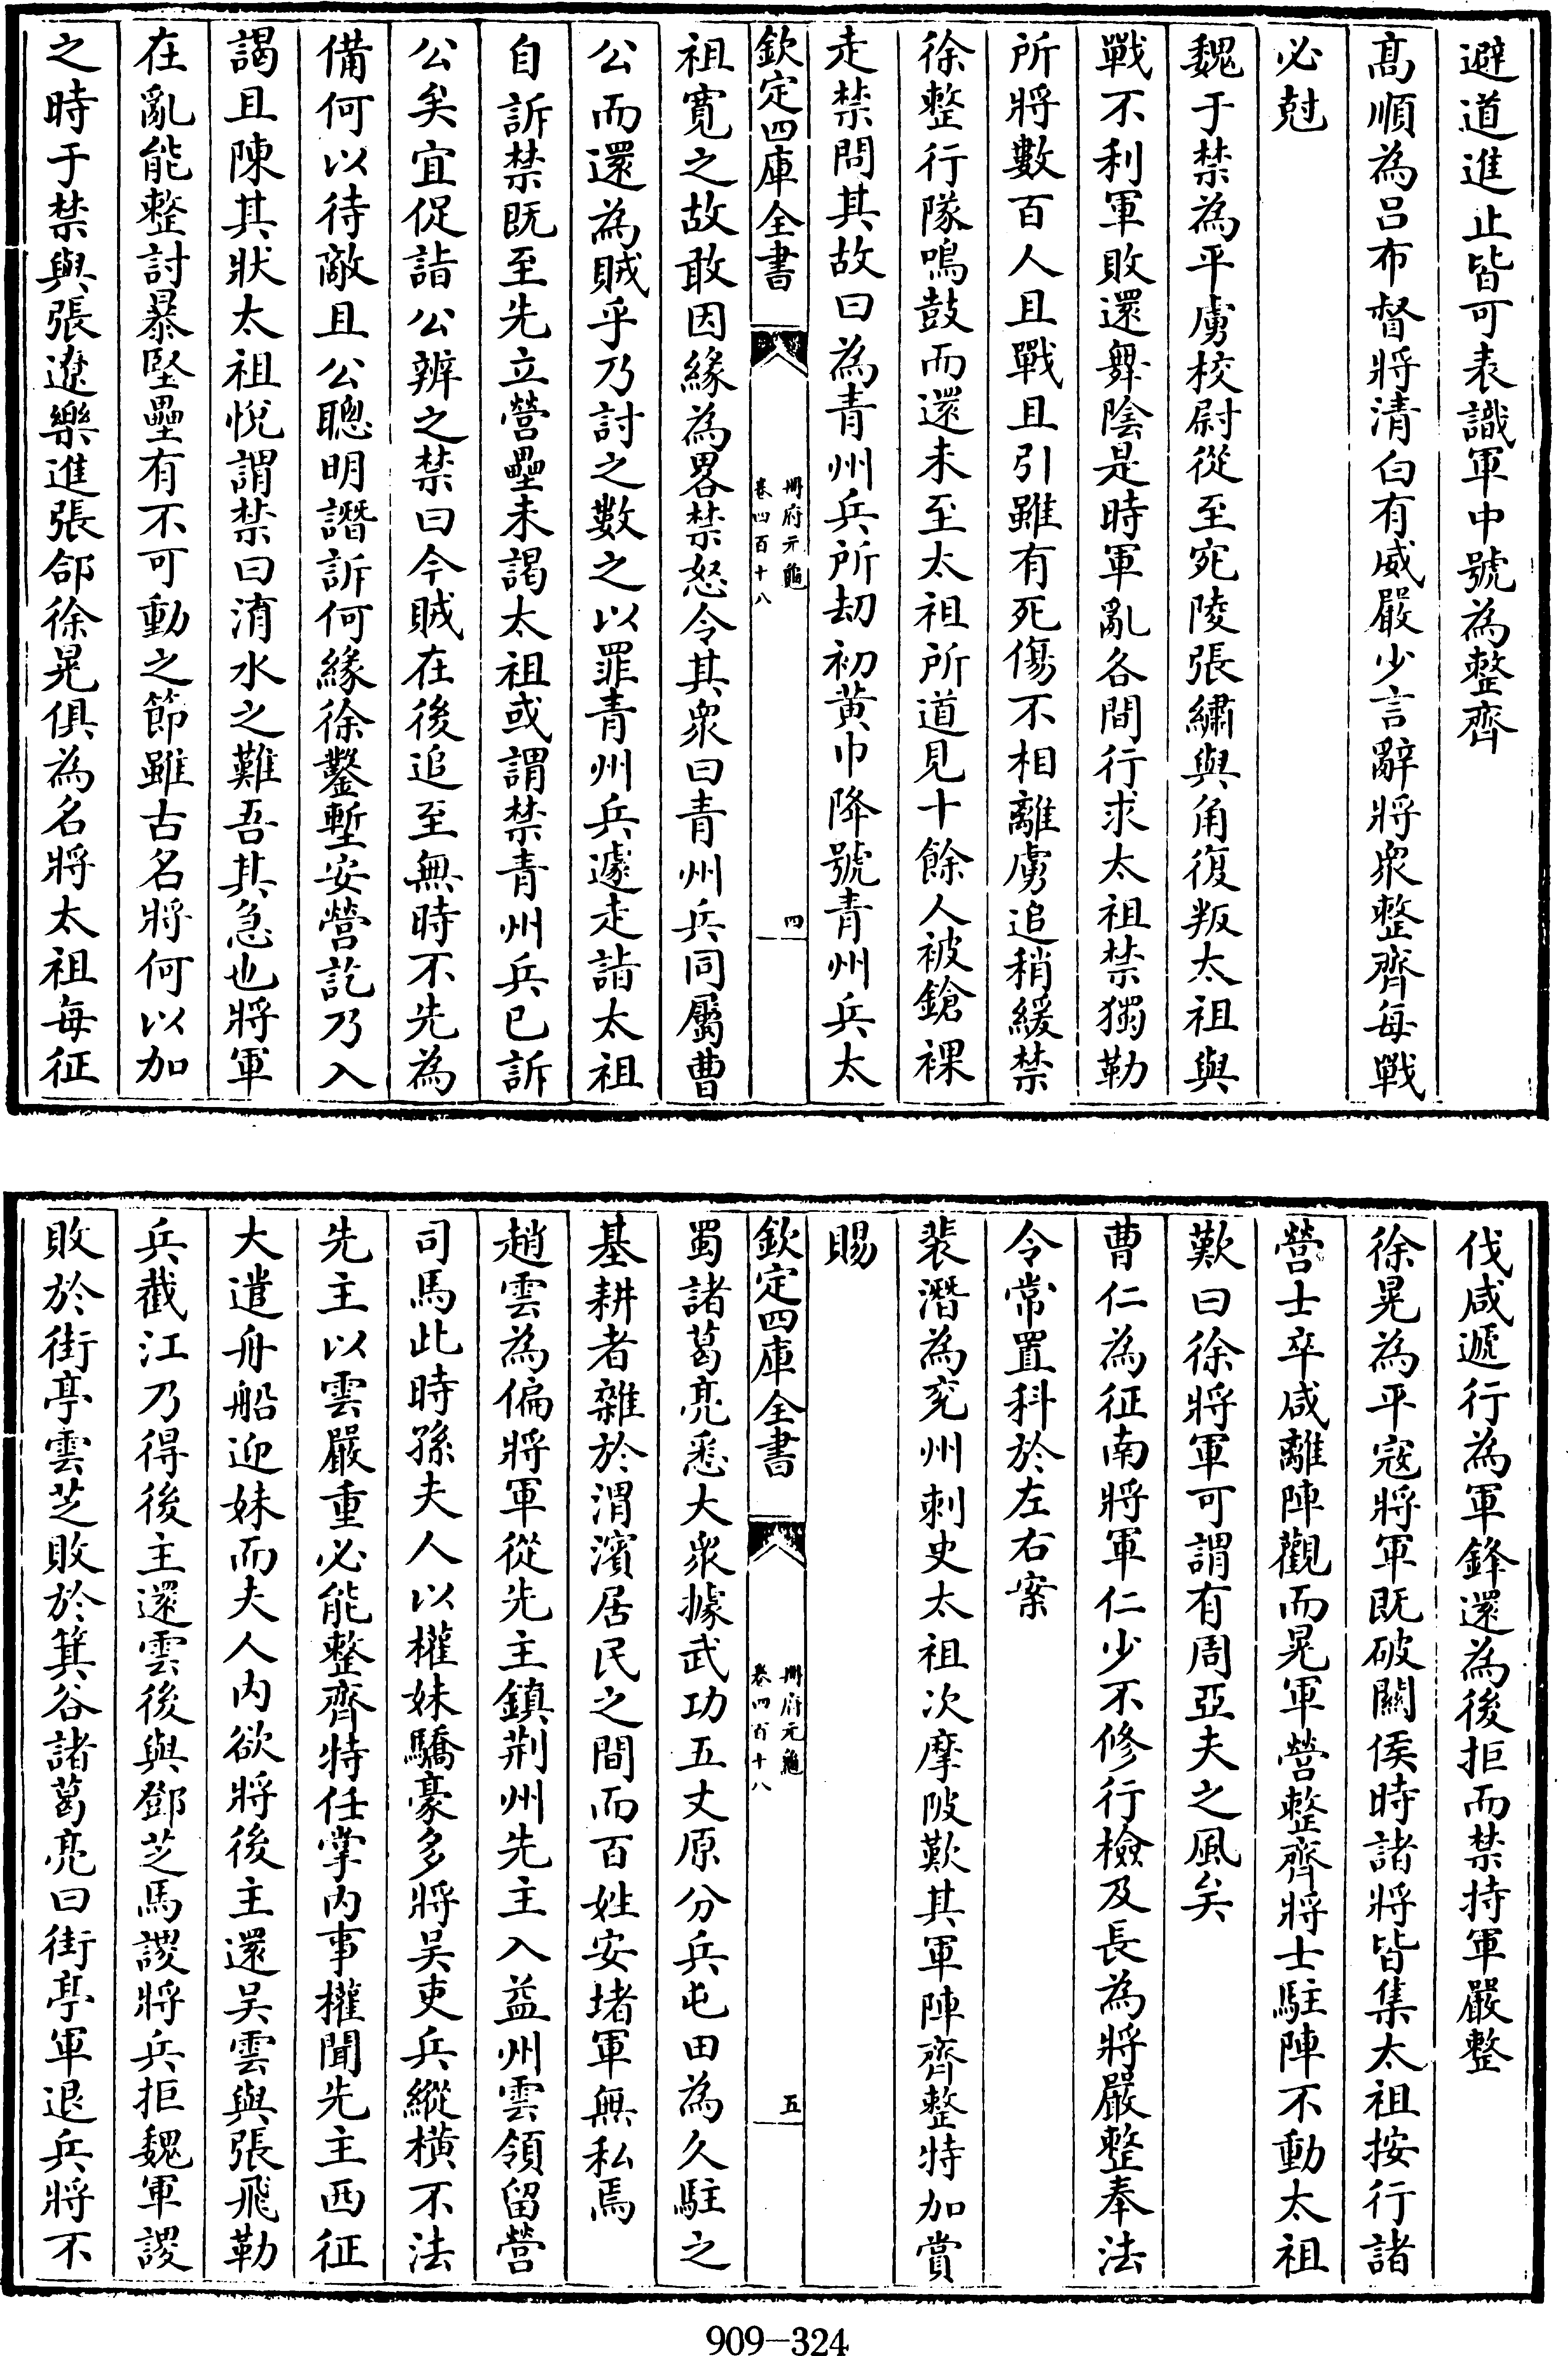 避道進止皆可表識軍中號為整齊
髙順為吕布督將清白有威嚴少言辭將衆整齊每戰
必尅
魏于禁為平虜校尉從至宛陵張繡與角復叛太祖與
戰不利軍敗還舞陰是時軍亂各間行求太祖禁獨勒
所將數百人且戰且引雖有死傷不相離虜追稍緩禁
徐整行隊鳴鼓而還未至太祖所道見十餘人被鎗裸
走禁問其故曰為青州兵所刼初黄巾降號青州兵太
欽定四庫全書
冊府元龜
卷四百十八
四
祖寛之故敢因緣為畧禁怒令其衆曰青州兵同屬曹
公而還為賊乎乃討之數之以罪青州兵遽走詣太祖
自訴禁既至先立營壘未謁太祖或謂禁青州兵已訴
公矣宜促詣公辨之禁曰今賊在後追至無時不先為
備何以待敵且公聰明譖訴何緣徐鑿塹安營訖乃入
謁且陳其狀太祖悅謂禁曰淯水之難吾其急也將軍
在亂能整討暴堅壘有不可動之節雖古名將何以加
之時于禁與張遼樂進張郃徐晃俱為名將太祖每征
伐咸遞行為軍鋒還為後拒而禁持軍嚴整
徐晃為平寇將軍既破關侯時諸將皆集太祖按行諸
營士卒咸離陣觀而晃軍營整齊將士駐陣不動太祖
歎曰徐將軍可謂有周亞夫之風矣
曹仁為征南將軍仁少不修行檢及長為將嚴整奉法
令常置科於左右案
裴潛為兖州刺史太祖次摩陂歎其軍陣齊整特加賞
賜
欽定四庫全書
冊府元龜
卷四百十八
五
蜀諸葛亮悉大衆據武功五丈原分兵屯田為久駐之
基耕者雜於渭濱居民之間而百姓安堵軍無私焉
趙雲為偏將軍從先主鎮荆州先主入益州雲領留營
司馬此時孫夫人以權妹驕豪多將吴吏兵縱横不法
先主以雲嚴重必能整齊特任掌内事權聞先主西征
大遣舟船迎妹而夫人内欲將後主還吴雲與張飛勒
兵截江乃得後主還雲後與鄧芝馬謖將兵拒魏軍謖
敗於街亭雲芝敗於箕谷諸葛亮曰街亭軍退兵將不
909-324